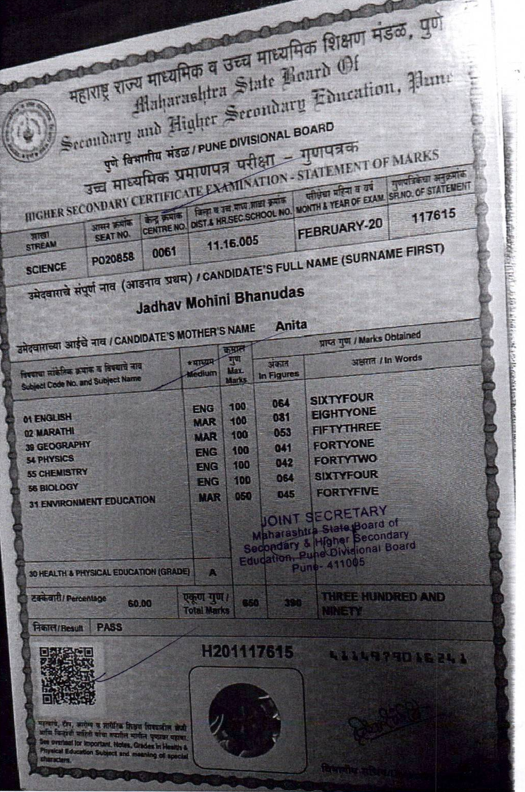 महाराष्ट्र राज्य माध्यमिक व उच्च माध्यमिक शिक्षण मंडळ, पुणे
Maharashtra State Board Of
Secondary and Higher Secondary Education, Pune
पुणे विभागीय मंडळ / PUNE DIVISIONAL BOARD
उच्च माध्यमिक प्रमाणपत्र परीक्षा - गुणपत्रक
HIGHER SECONDARY CERTIFICATE EXAMINATION - STATEMENT OF MARKS
शाखा STREAM आसन क्रमांक SEAT NO. केन्द्र क्रमांक CENTRE NO. DIST.& HR.SEC.SCHOOL NO. परीक्षेचा महिना व वर्ष MONTH & YEAR OF EXAM. गुणपत्रिकेचा अनुक्रमांक SR.NO. OF STATEMENT
SCIENCE P020858 0061 11.16.005 FEBRUARY-20 117615
उमेदवाराचे संपूर्ण नाव (आडनाव प्रथम) / CANDIDATE'S FULL NAME (SURNAME FIRST)
Jadhav Mohini Bhanudas
उमेदवाराच्या आईचे नाव / CANDIDATE'S MOTHER'S NAME Anita
विषयाचा सांकेतिक क्रमांक व विषयाचे नाव Subject Code No. and Subject Name *माध्यम Medium कमाल गुण Max. Marks प्राप्त गुण / Marks Obtained
अंकात In Figures अक्षरात / In Words
01 ENGLISH ENG 100 064 SIXTYFOUR
02 MARATHI MAR 100 081 EIGHTYONE
39 GEOGRAPHY MAR 100 053 FIFTYTHREE
54 PHYSICS ENG 100 041 FORTYONE
55 CHEMISTRY ENG 100 042 FORTYTWO
56 BIOLOGY ENG 100 064 SIXTYFOUR
31 ENVIRONMENT EDUCATION MAR 050 045 FORTYFIVE
JOINT SECRETARY
Maharashtra State Board of
Secondary & Higher Secondary
Education, Pune Divisional Board
Pune- 411005
30 HEALTH & PHYSICAL EDUCATION (GRADE) A
टक्केवारी / Percentage 60.00 एकूण गुण / Total Marks 650 390 THREE HUNDRED AND
NINETY
निकाल/Result PASS
H201117615
See overleaf for Important Notes, Grades in Health &
Physical Education Subject and meaning of special
characters.